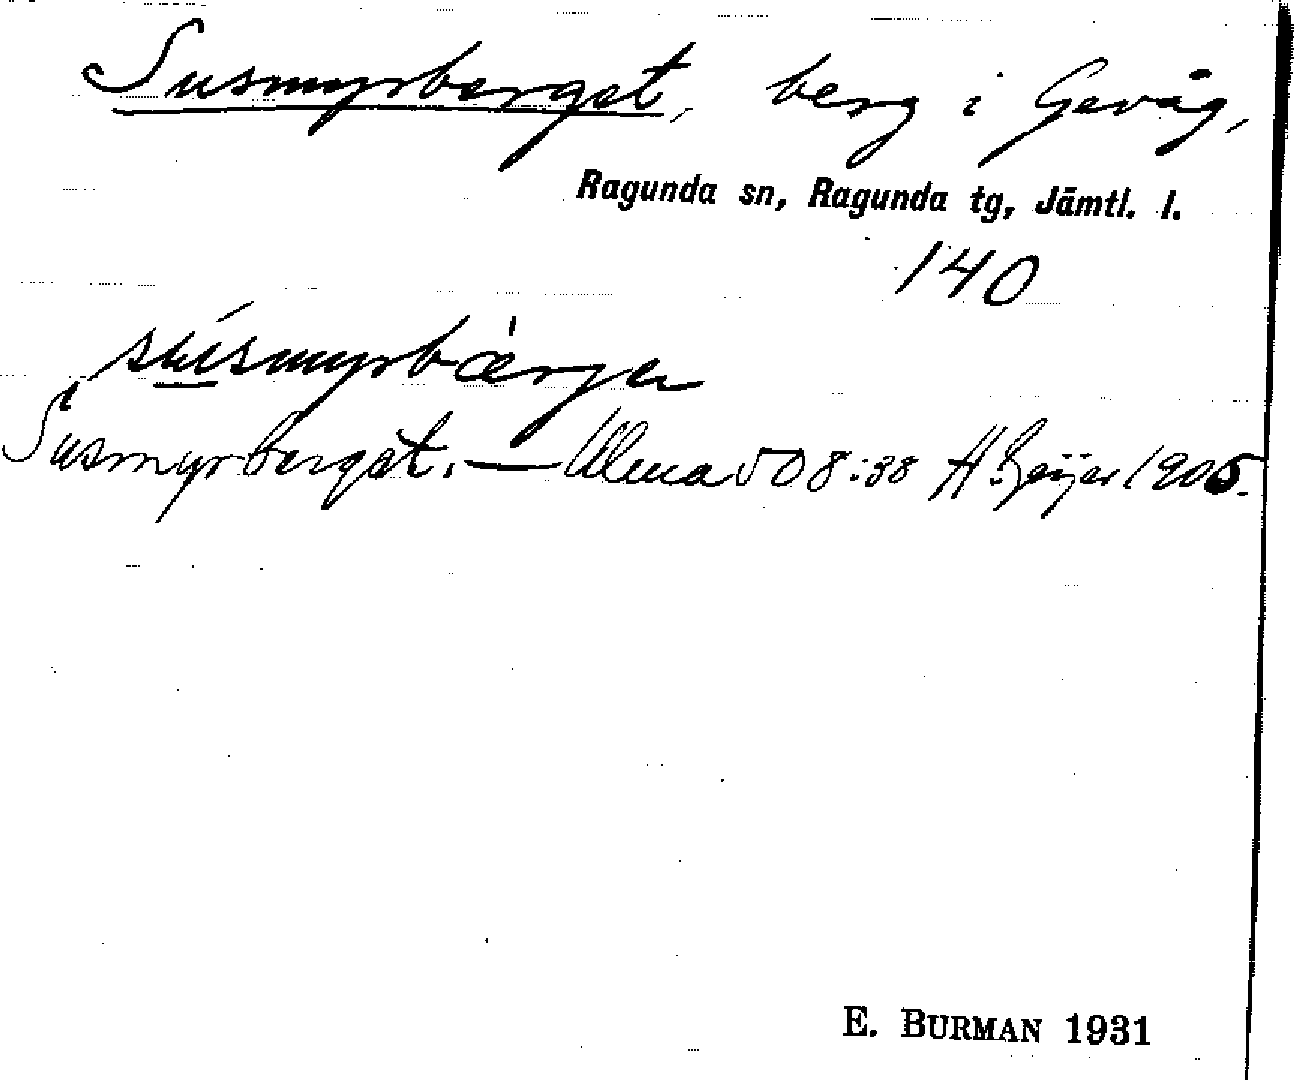 Susmyrberget, berg i Gevåg,
Ragunda sn, Ragunda tg, Jämtl. l.
140
Susmyrberget. — Ulma 508:38 A. Geijer 1905.
E. BURMAN 1931